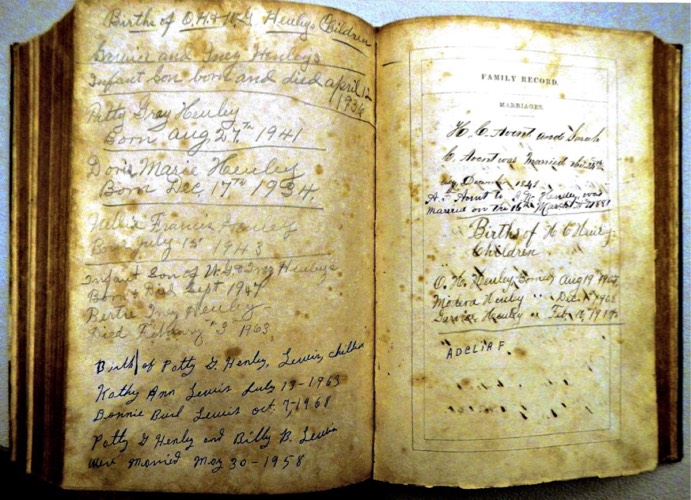 Births of O.H. & W.G. Henleys Children
Garvice and Inez Henleys
Infant Son born and died april 12
1936
Patty Gray Henley
Born Aug 27th 1941
Doris Marie Henley
Born Dec. 17th 1934
Francis Henley
Born July 15
Infant Son of W.G. & Inez Henleys
Born & Died Sept 1947
Bertie Inez Henley
Died February 3 1963
Birth of Patty G. Henley, Lewis, childre
Kathy Ann Lewis July 13-1963
Bonnie Burl Lewis oct. 7, 1968
Patty G Henley and Billy B. Lewis
Were Married May 30-1958
FAMILY RECORD.
MARRIAGES.
H. C. Avent and Sarah
C. Avent was Married
day December 1841
A. F. Avent to J. W. Hensley was
Married on the 16th March 1881
Births of H C Henley
Children
O. H. Henley Aug 19
Henley " Dec
Garvice Henley " Feb
ADELIA F.